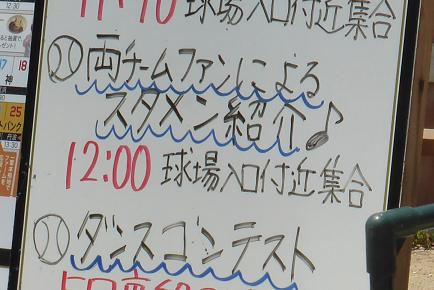 球場入口付近集合
両チームファンによる
スタメン紹介♪
12:00 球場入口付近集合
ダンスコンテスト
神 18
25
13:30